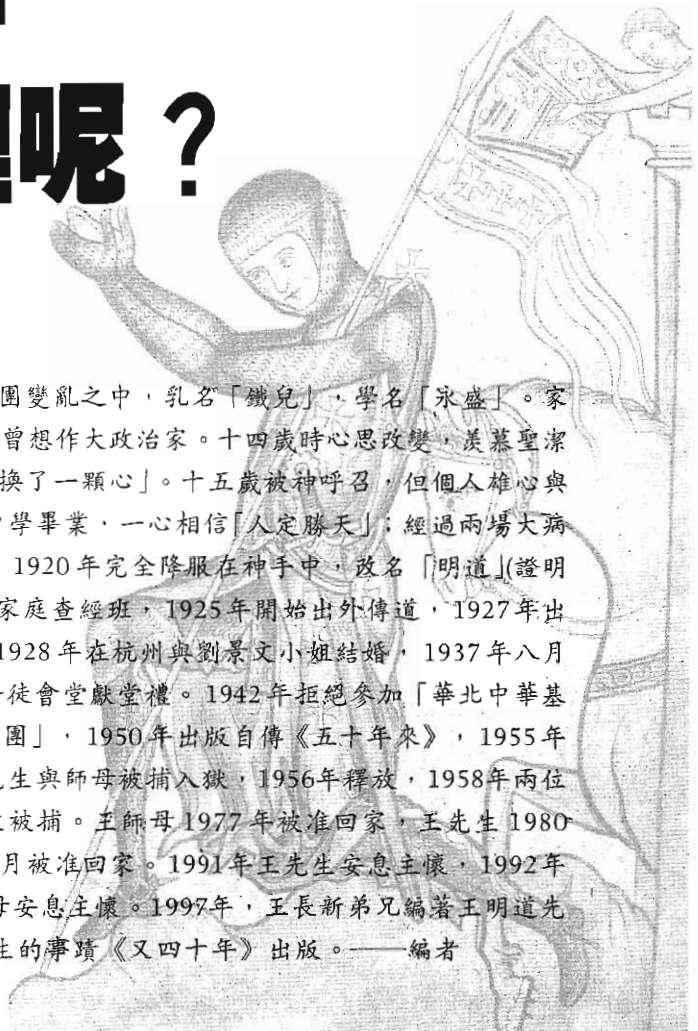 呢？
團變亂之中，乳名「鐵兒」，學名「永盛」。家
曾想作大政治家。十四歲時心思改變，羨慕聖潔
換了一顆心」。十五歲被神呼召，但個人雄心與
學畢業，一心相信「人定勝天」；經過兩場大病
1920年完全降服在神手中，改名「明道」(證明
家庭查經班，1925年開始出外傳道，1927年出
1928年在杭州與劉景文小姐結婚，1937年八月
徒會堂獻堂禮。1942年拒絕參加「華北中華基
團」，1950年出版自傳《五十年來》，1955年
生與師母被捕入獄，1956年釋放，1958年兩位
被捕。王師母1977年被准回家，王先生1980
月被准回家。1991年王先生安息主懷，1992年
母安息主懷。1997年，王長新弟兄編著王明道先
生的事蹟《又四十年》出版。——編者